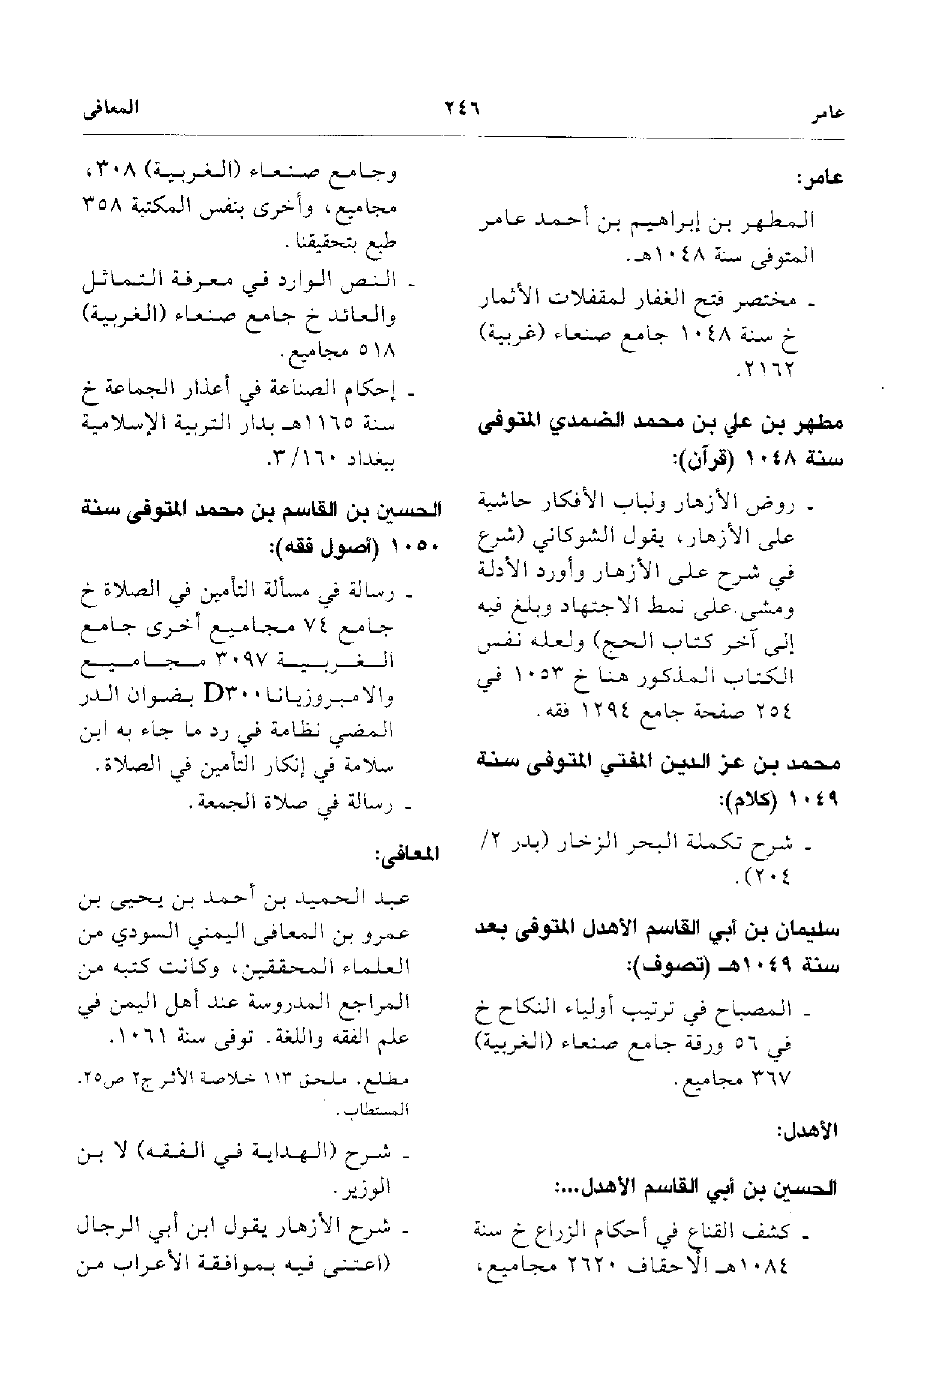 عامر
٢٤٦
المعافى
عامر:
المطهر بن إبراهيم بن أحمد عامر
المتوفى سنة ١٠٤٨هـ.
ـ مختصر فتح الغفار لمقفلات الأثمار
خ سنة ١٠٤٨ جامع صنعاء (غربية)
٢١٦٢.
مطهر بن علي بن محمد الضمدي المتوفى
سنة ١٠٤٨ (قرآن):
ـ روض الأزهار ولباب الأفكار حاشية
على الأزهار، يقول الشوكاني (شرع
في شرح على الأزهار وأورد الأدلة
ومشى على نمط الاجتهاد وبلغ فيه
إلى آخر كتاب الحج) ولعله نفس
الكتاب المذكور هنا خ ١٠٥٣ في
٢٥٤ صفحة جامع ١٢٩٤ فقه.
محمد بن عز الدين المفتي المتوفى سنة
١٠٤٩ (كلام):
ـ شرح تكملة البحر الزخار (بدر ٢/
٢٠٤).
سليمان بن أبي القاسم الأهدل المتوفى بعد
سنة ١٠٤٩هـ (تصوف):
ـ المصباح في ترتيب أولياء النكاح خ
في ٥٦ ورقة جامع صنعاء (الغربية)
٣٦٧ مجاميع.
الأهدل:
الحسين بن أبي القاسم الأهدل...:
ـ كشف القناع في أحكام الزراع خ سنة
١٠٨٤هـ الأحقاف ٢٦٢٠ مجاميع،
وجامع صنعاء (الغربية) ٣٠٨،
مجاميع، وأخرى بنفس المكتبة ٣٥٨
طبع بتحقيقنا.
ـ النص الوارد في معرفة التماثل
والعائد خ جامع صنعاء (الغربية)
٥١٨ مجاميع.
ـ إحكام الصناعة في أعذار الجماعة خ
سنة ١١٦٥هـ بدار التربية الإسلامية
ببغداد ٣/١٦٠.
الحسين بن القاسم بن محمد المتوفى سنة
١٠٥٠ (أصول فقه):
ـ رسالة في مسألة التأمين في الصلاة خ
جامع ٧٤ مجاميع أخرى جامع
الغربية ٣٠٩٧ مجاميع
والامبروزيانا D٣٠٠ بضوان الدر
المضي نظامة في رد ما جاء به ابن
سلامة في إنكار التأمين في الصلاة.
ـ رسالة في صلاة الجمعة.
المعافى:
عبد الحميد بن أحمد بن يحيى بن
عمرو بن المعافى اليمني السودي من
العلماء المحققين، وكانت كتبه من
المراجع المدروسة عند أهل اليمن في
علم الفقه واللغة. توفى سنة ١٠٦١.
مطلع. ملحق ١١٣ خلاصة الأثر ج٢ ص٢٥.
المستطاب.
ـ شرح (الهداية في الفقه) لا بن
الوزير.
ـ شرح الأزهار يقول ابن أبي الرجال
(اعتنى فيه بموافقة الأعراب من